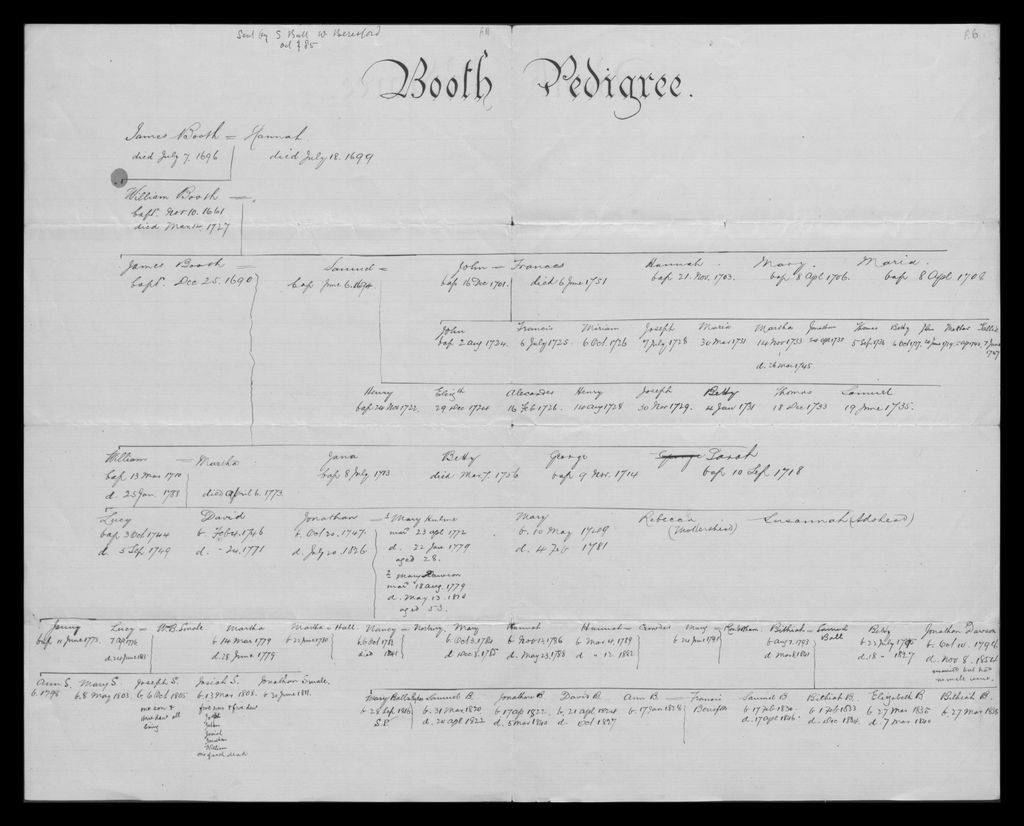 Sent by S Ball W Beresford
Oct 85
P.6.
Booth Pedigree.
James Booth = Hannah
died July 7. 1696 died July 18. 1699
William Booth =
bapt. Nov 10. 1661
died Mar 1727
James Booth = Samuel = John = Frances Hannah. Mary. Maria.
bapt. Dec 25. 1690 bap June 6. 1694. bap 16 Dec 1701. died 6 June 1751 bap 21. Nov. 1703. bap 8 Apl 1706. bap 8 Apl 1708
John Francis Miriam Joseph Maria Martha Jonathan Thomas Betty
bap 2 Aug 1724. 6 July 1725. 6 Oct. 1726 7 July 1728 30 Mar 1731 14 Nov 1733 5 Sep. 1736 6 Oct 1737.
d. 26 Mar. 1745
Henry Elizth Alexander Henry Joseph Betty Thomas Samuel
bap 24 Nov 1722. 29 Dec 1724 16 Feb 1726. 14 Aug 1728 30 Nov 1729. 4 Jan 1731 18 Dec 1733 19 June 1735.
William = Martha Jana Betty George Sarah
bap 13 Mar 1710 bap 8 July 1713 died Mar 7. 1756 bap 9 Nov. 1714 bap 10 Sep 1718
d. 25 Jan. 1788 died April 6. 1773.
Lucy David Jonathan = 1 Mary Hulme Mary Rebecca Susannah (Adshead)
bap 3 Oct 1744 b. Feb 4. 1746 b. Oct 20. 1747. mar 23 Apl 1772 b. 10 May 1749 (Mottershead)
d. 5 Sep 1749 d. - 24. 1771 d. July 20. 1826 d. 22 Jan 1779 d. 4 Feb 1781
aged 28.
2 Mary Dawson
mar 18 Aug. 1779
d. May 13. 1810
aged 53.
Jenny Lucy = W.B. Smale. Martha Martha = Hall Nancy = Mary Hannah Hannah = Crowder Mary = Bithiah = Samuel Ball Betty Jonathan Dawson
bap 11 June 1773. 7 Ap 1776 b 14 Mar 1779 b 21 June 1780 b Oct 3. 1784 b Nov 12, 1786 b Mar 4. 1789 b Aug 7. 1793 b 22 July 1795 b. Oct 10. 1796
d. 28 June 1779 died 1841 d. Dec 8. 1785 d. May 23. 1788 d. " 12 1882 d. Mar 8. 1841 d. 18 " 1827 d. Nov 8. 1854
married but had
no male issue.
Ann S. Mary S. Joseph S. Josiah S. Jonathan Smale.
b. 1798 b. 8 May 1803 b. 6 Oct 1805 b. 13 Mar 1808. b 20 June 1811.
one son & four sons & five dau
one dau all Joseph
living John
Josiah
Jonathan
William
Samuel B. Jonathan B David B. Ann B. = Francis Beresford Samuel B Bithiah B. Elizabeth B Bithiah B.
b 28 Sep 1816 b. 31 Mar 1820 b 17 Ap 1822. b. 21 Apl 1824 b. 17 Jan 1828 b 17 Feb 1830. b 1 Feb 1833 b 27 Mar 1835 b. 27 Mar 1838
S.P. d. 20 Apl 1822 d. 5 Mar 1840 d. Oct 1827 d. 17 Apl 1846. d. Dec 1834. d. 7 Mar 1840